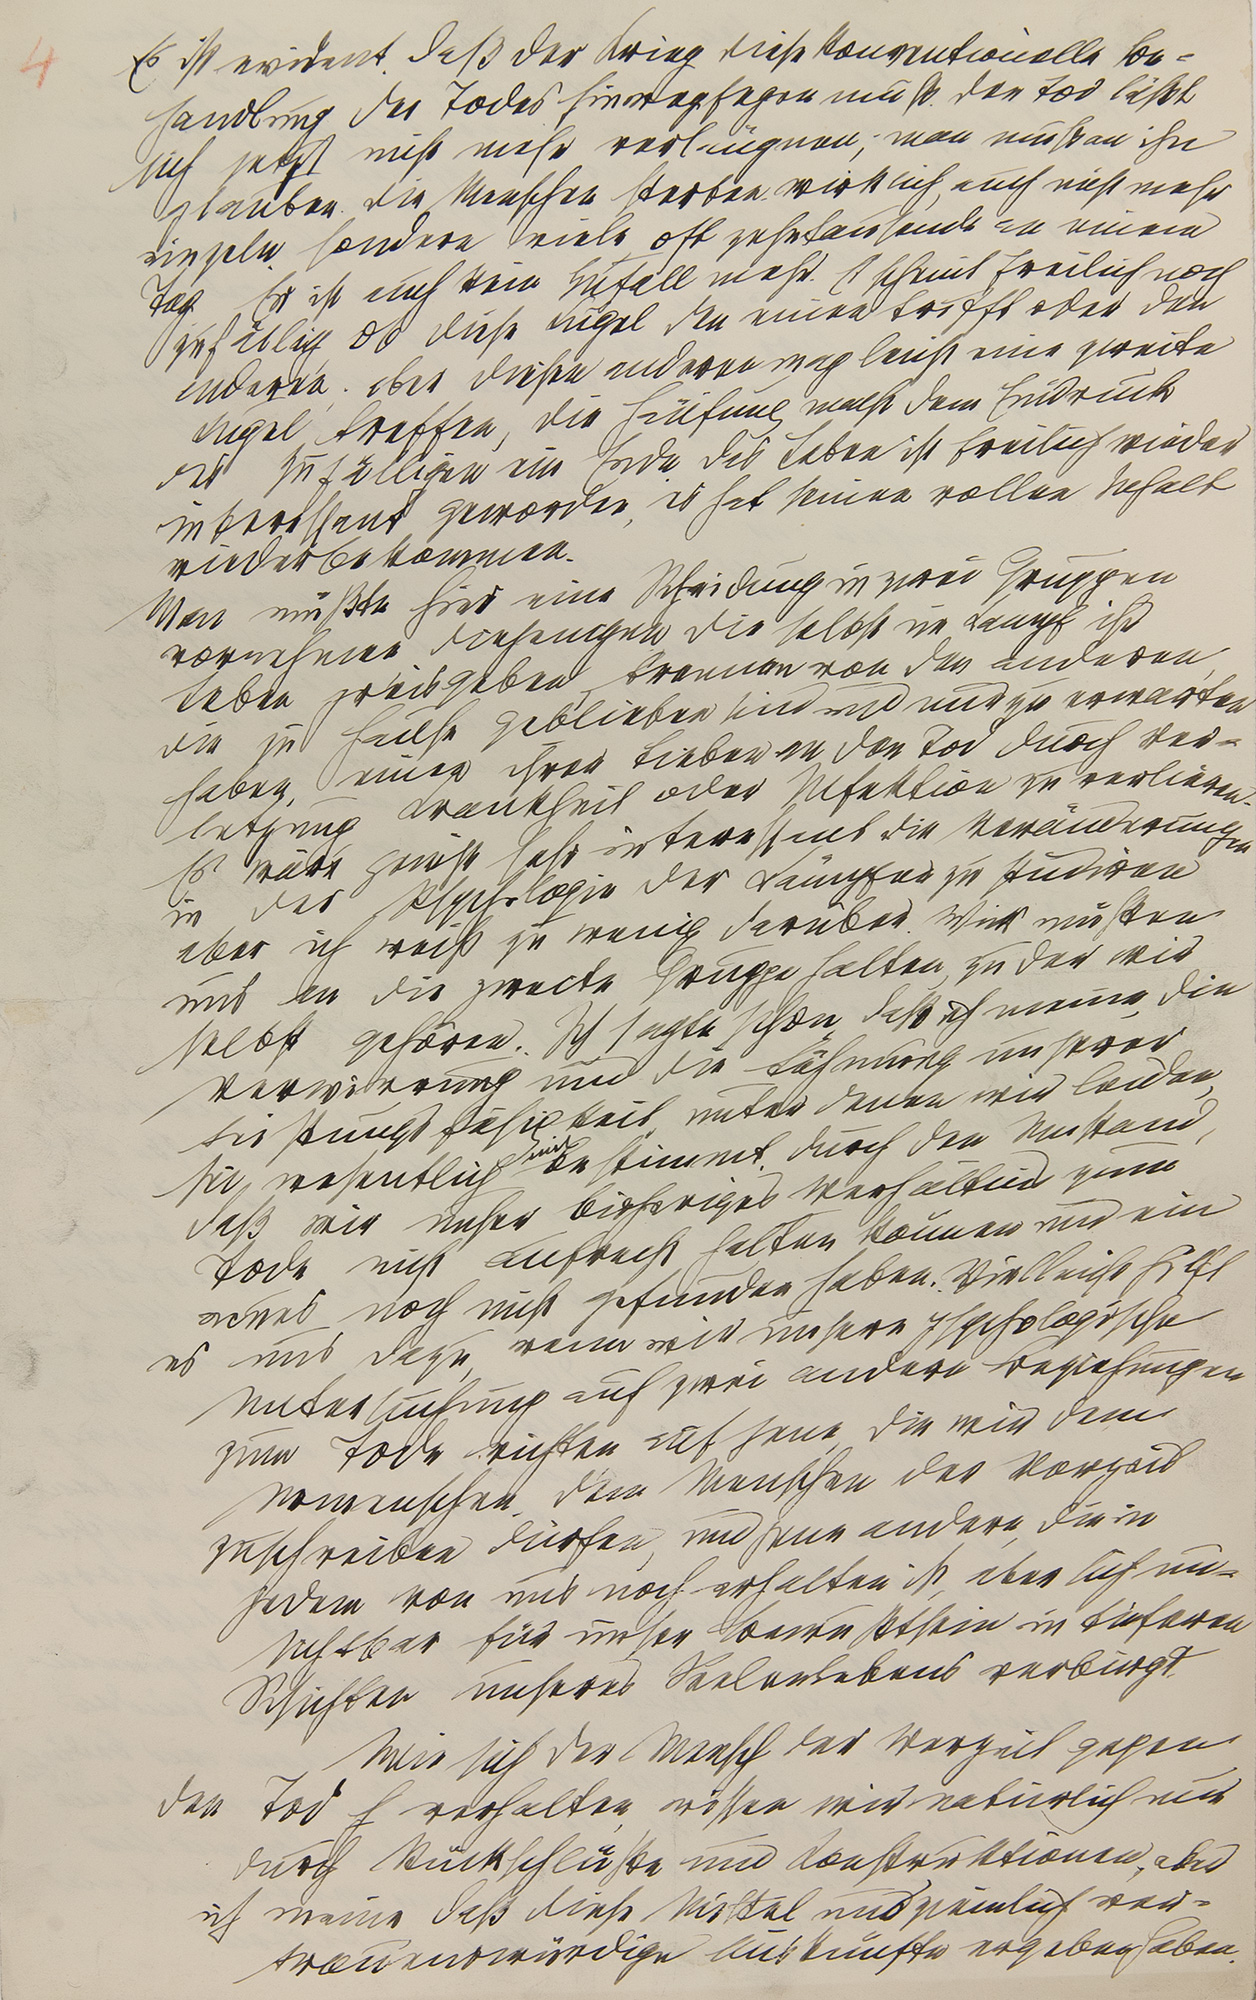 4
Es ist evident, daß der Krieg diese konventionelle Be-
handlung des Todes hinwegfegen muß. Der Tod läßt
sich jetzt nicht mehr verläugnen; man muß an ihn
glauben. Die Menschen sterben wirklich, auch nicht mehr
einzeln, sondern viele, oft zehntausende an einem
Tag. Es ist auch kein Zufall mehr. Es scheint freilich noch
zufällig, ob diese Kugel den einen trifft oder den
anderen; aber diesen anderen mag leicht eine zweite
Kugel treffen, die Häufung macht dem Eindruck
des Zufälligen ein Ende. Das Leben ist freilich wieder
interessant geworden, es hat seinen vollen Inhalt
wiederbekommen.
Man müßte hier eine Scheidung in zwei Gruppen
vornehmen, diejenigen, die selbst im Kampf ihr
Leben preisgeben, trennen von den anderen,
die zu Hause geblieben sind und nur zu erwarten
haben, einen ihrer Lieben an den Tod durch Ver-
letzung, Krankheit oder Infektion zu verlieren.
Es wäre gewiß sehr interessant, die Veränderungen
in der Psychologie der Kämpfer zu studiren,
aber ich weiß zu wenig darüber. Wir müssen
uns an die zweite Gruppe halten, zu der wir
selbst gehören. Ich sagte schon, daß ich meine, die
Verwirrung und die Lähmung unserer
Leistungsfähigkeit, unter denen wir leiden,
sei wesentlich mit bestimmt durch den Umstand,
daß wir unser bisheriges Verhältnis zum
Tode nicht aufrecht halten können und ein
neues noch nicht gefunden haben. Vielleicht hilft
es uns dazu, wenn wir unsere psychologische
Untersuchung auf zwei andere Beziehungen
zum Tode richten, auf jene, die wir dem
Urmenschen, dem Menschen der Vorzeit
zuschreiben dürfen, und jene andere, die in
jedem von uns noch erhalten ist, aber sich un-
sichtbar für unser Bewußtsein in tieferen
Schichten unseres Seelenlebens verbirgt.
Wie sich der Mensch der Vorzeit gegen
den Tod verhalten, wissen wir natürlich nur
durch Rückschlüsse und Konstruktionen, aber
ich meine, daß diese Mittel uns ziemlich ver-
trauenswürdige Auskünfte ergeben haben.